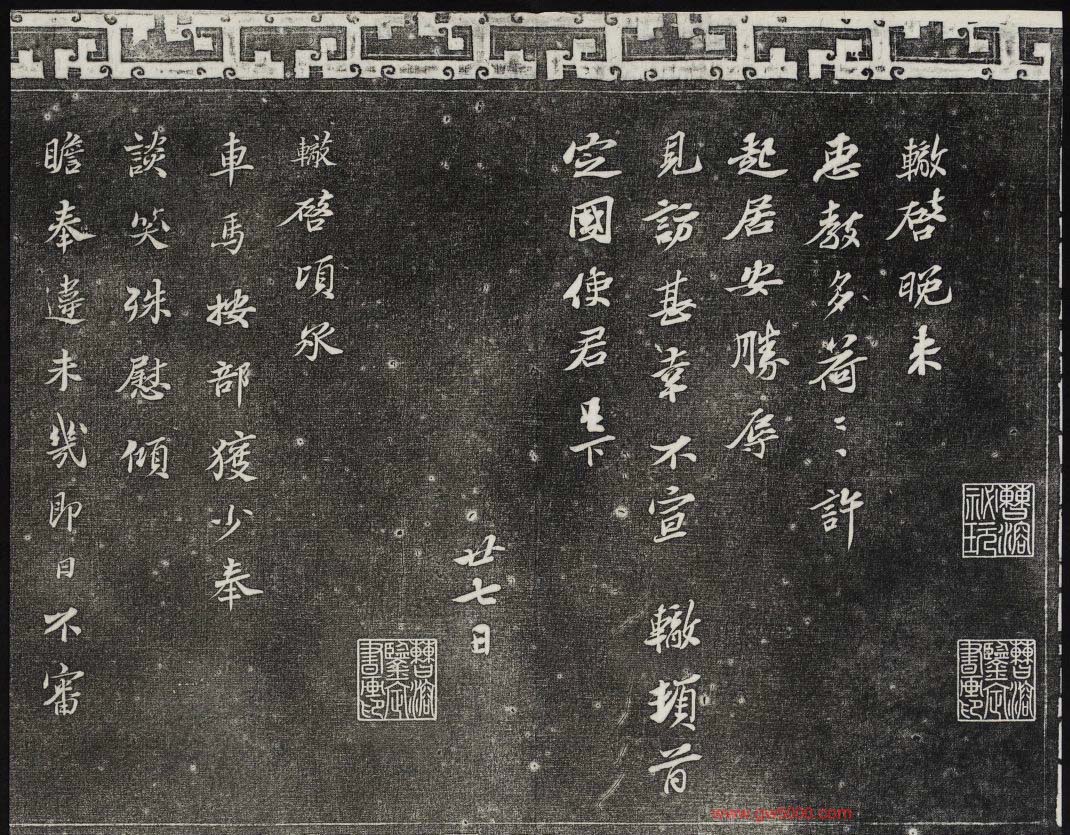 轍啓晚来
惠教多荷〻許
起居安勝辱
見訪甚幸不宣 轍頓首
定國使君足下
廿七日
轍啓頃承
車馬按部獲少奉
談笑殊慰傾
瞻奉違未幾即日不審
曹溶秘玩
曹溶鑒定書畫印
曹溶鑒定書畫印